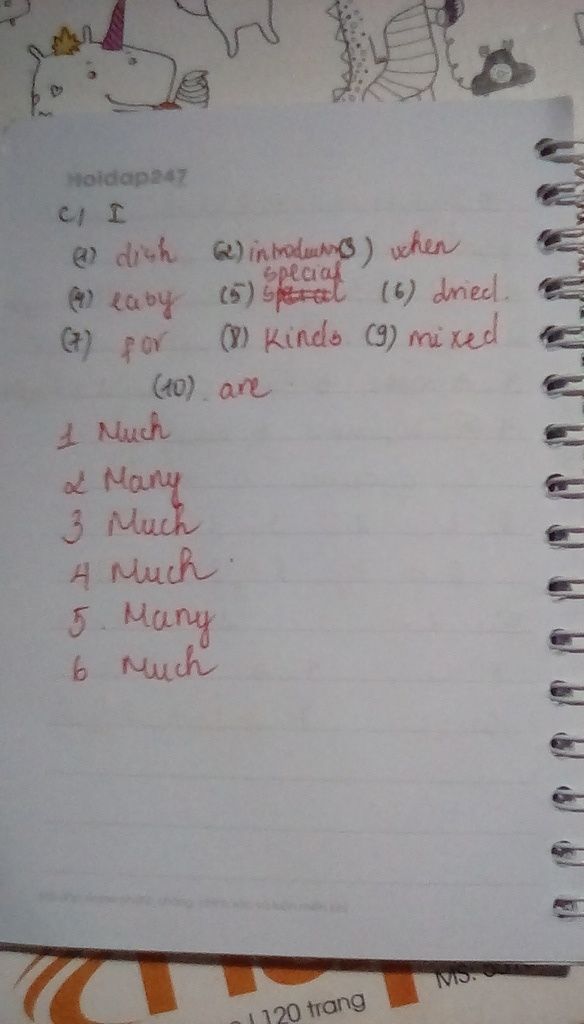 Hoidap247
C, I
(1) dish (2) introduces (3) when
(4) easy (5) special (6) dried.
(7) for (8) Kinds (9) mixed
(10). are
1 Much
2 Many
3 Much
4 Much
5. Many
6 Much
120 trang
MS: